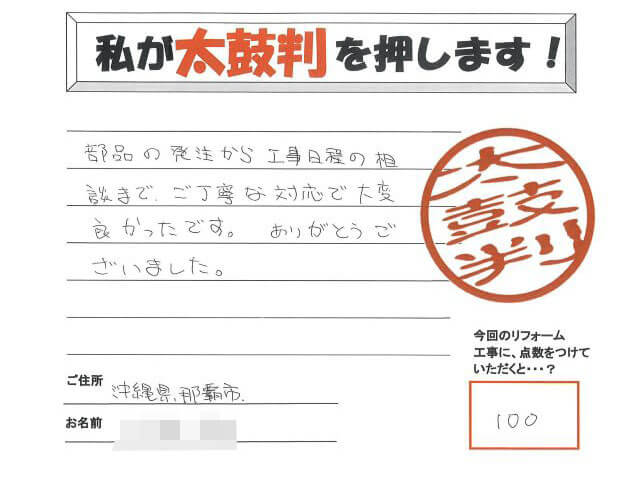 私が太鼓判を押します！
部品の発注から工事日程の相
談まで、ご丁寧な対応で大変
良かったです。 ありがとうご
ざいました。
太鼓判
今回のリフォーム
工事に、点数をつけて
いただくと・・・？
ご住所 沖縄県,那覇市.
お名前
100